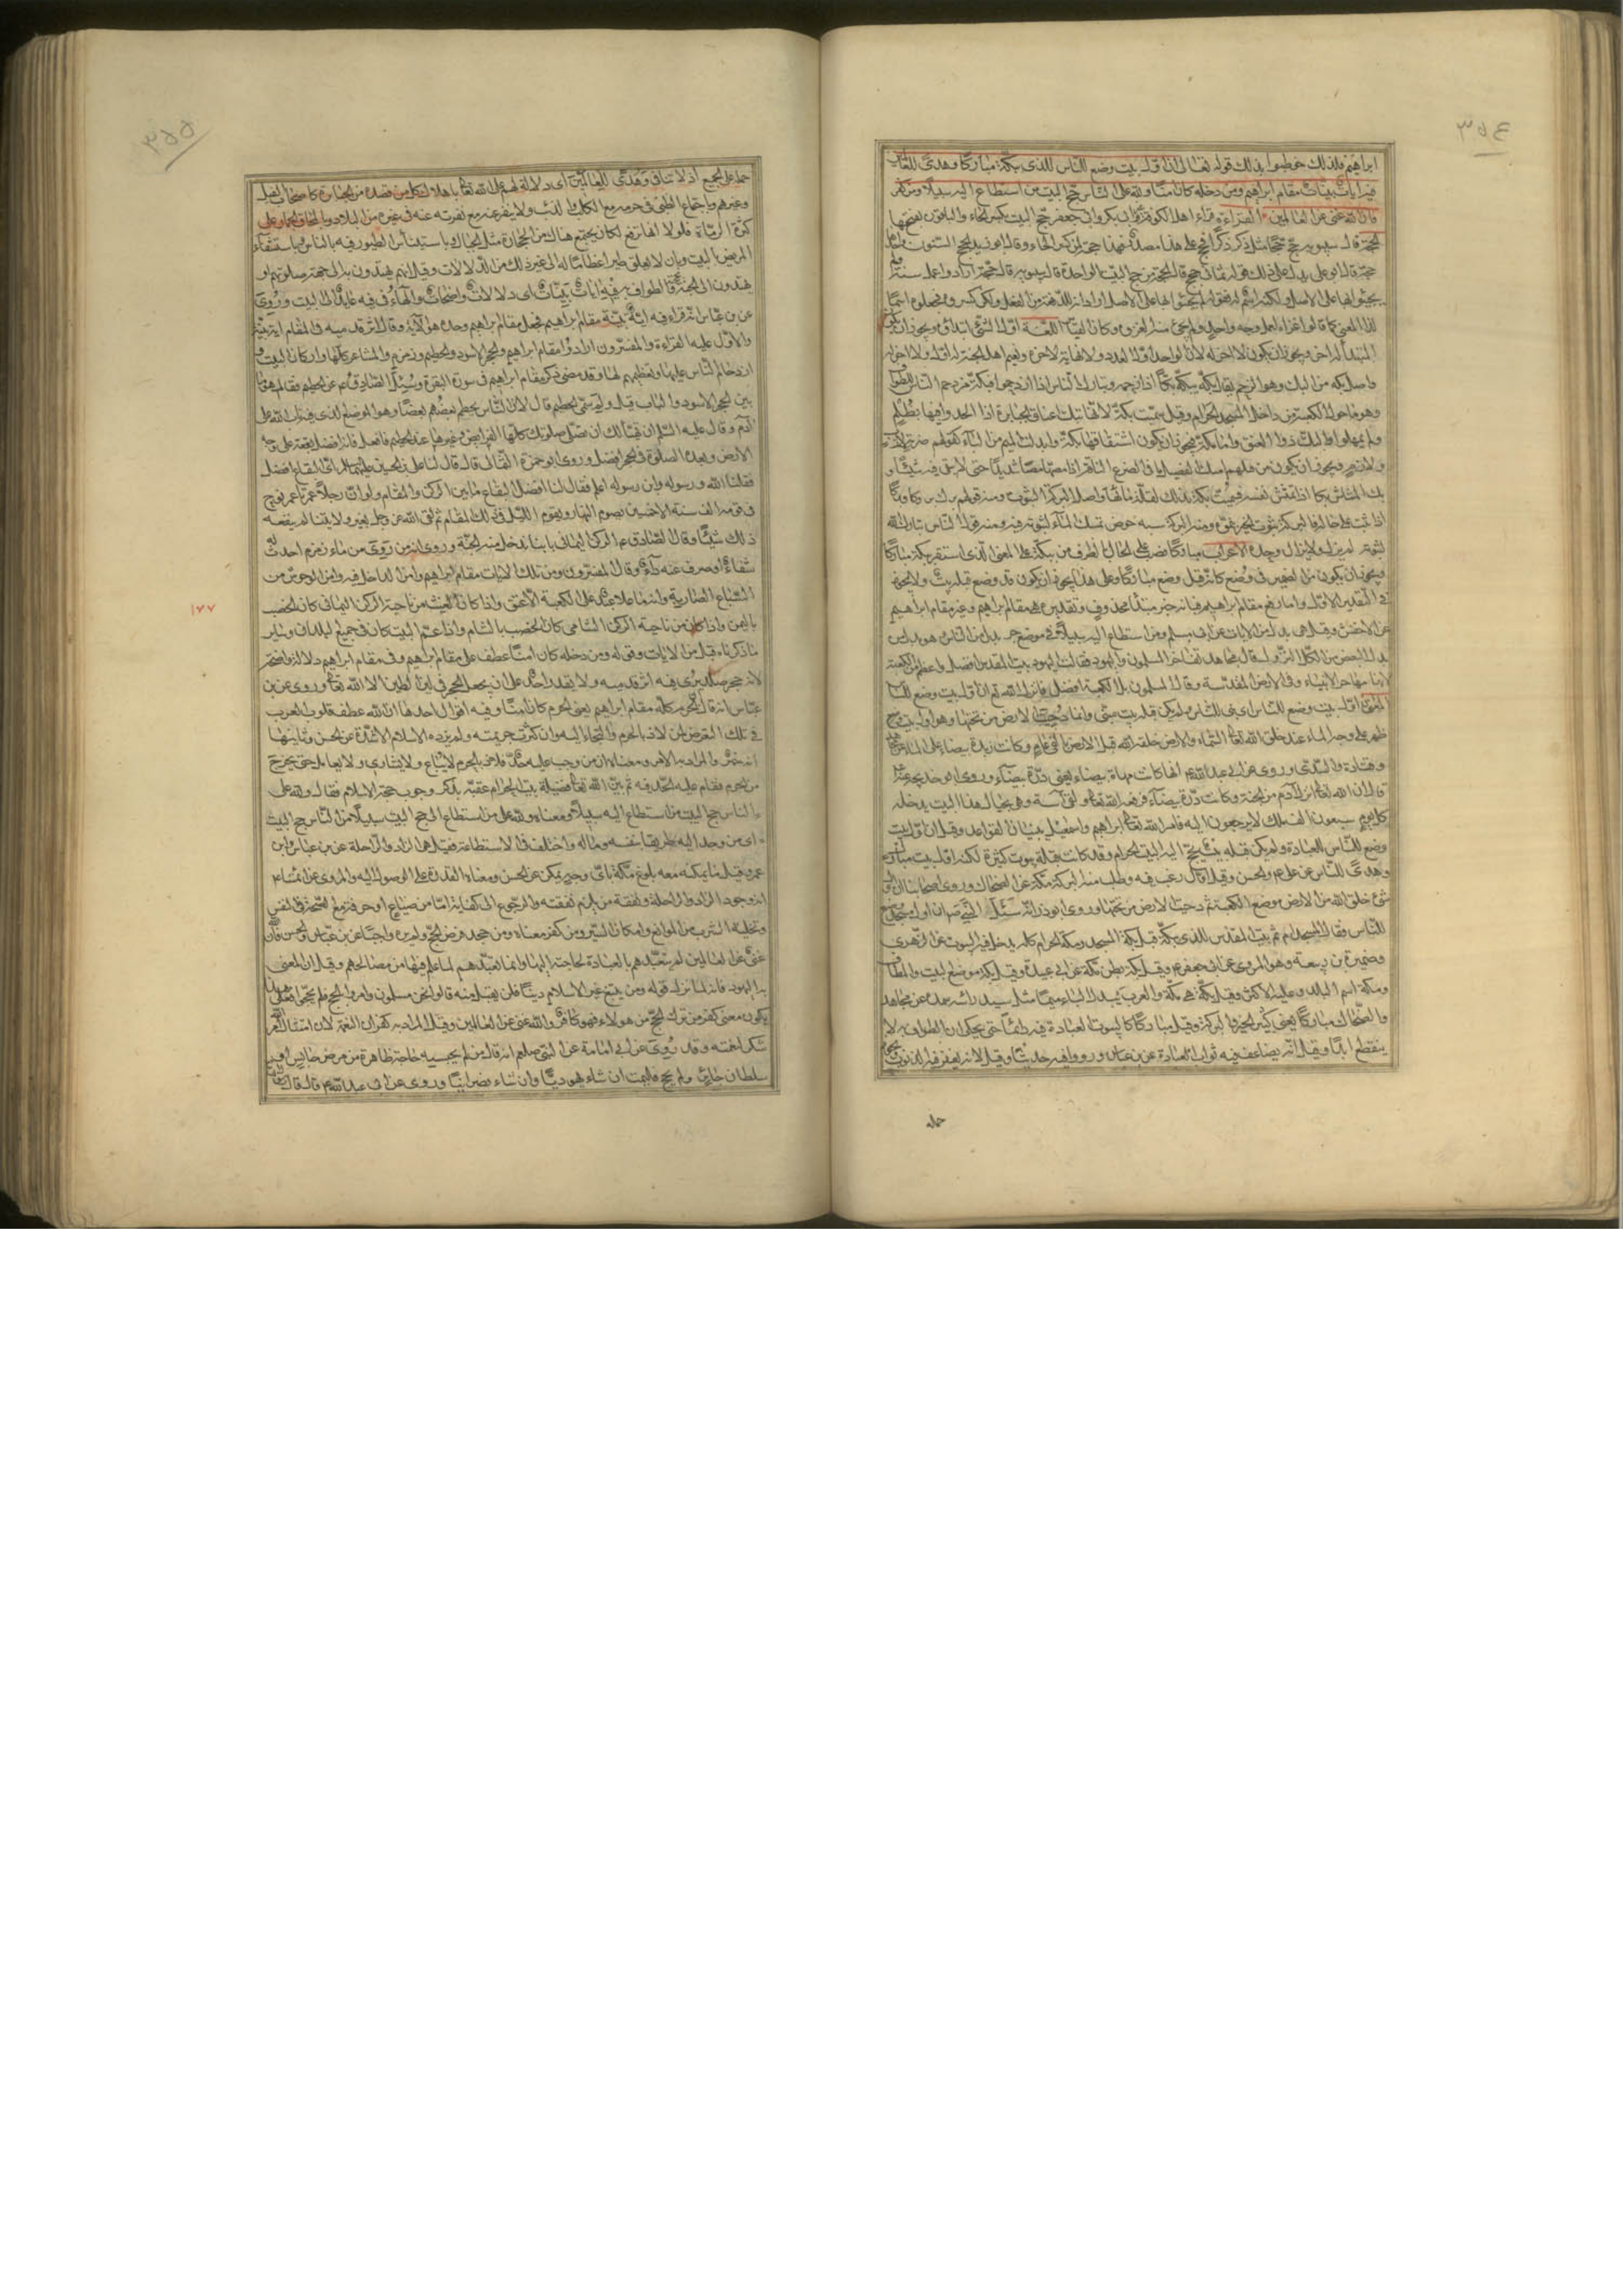 ٣٥٤
ابراهيم فلذلك خوطبوا بذلك قوله تعالى ان اول بيت وضع للناس للذى ببكة مباركا وهدى للعالمين
فيه ايات بينات مقام ابراهيم ومن دخله كان امنا ولله على الناس حج البيت من استطاع اليه سبيلا ومن كفر
فان الله غنى عن العالمين القراءة قراء اهل الكوفة غير ابى بكر وابى جعفر حج البيت بكسر الحاء والباقون بفتحها
الحجة قال سيبويه حج حجا مثل ذكر ذكرا فحج على هذا مصدر فهذا حجة لمن كسر الحاء وقال ابو زيد الحج السنون
حجة قال ابو على يدل على ذلك قوله ثمانى حجج قال الحجة من حج البيت الواحدة قال سيبويه قالوا حجة ارادوا عمل سنة
اللغة اول الشئ ابتداؤه ويجوز ان يكون
المبتدأ له اخر ويجوز ان يكون لا اخر له لان الواحد اول العدد ولا نهاية لاخره ونعيم اهل الجنة له اول ولا اخر له
واصل بكة من البك وهو الزحم يقال بكه يبكه بكا اذا زحمه وتباك الناس اذا ازدحموا فبكة مزدحم الناس للطواف
وهو ما حول الكعبة من داخل المسجد الحرام وقيل سميت بكة لانها تبك اعناق الجبابرة اذا الحدوا فيها بظلم
ولم يمهلوا والبك دق العنق واما مكة فيجوز ان يكون اشتقاقها كبكة وابدلت الميم من الباء كقولهم ضربة لازب
ولازم ويجوز ان يكون من قولهم امتك الفصيل ما فى ضرع الناقة اذا مصه مصا شديدا حتى لا يبقى فيه شيئا و
واصل البركة الثبوت من قولهم برك بركا وبروكا
اذا ثبت على حاله فالبركة ثبوت الخير بنموه ومنه البركة شبه حوض يمسك الماء لثبوته فيه ومنه قول الناس تبارك الله
لثبوته لم يزل ولا يزال وحده الاعراب مباركا نصب على الحال الظرف من بكة على المعنى الذى استقر ببكة مباركا
ويجوز ان يكون من الضمير فى وضع كانه قيل وضع مباركا وعلى هذا يجوز ان يكون قد وضع قبله بيت ولا يجوز
فى التقدير الاول واما رفع مقام ابراهيم فبانه خبر مبتدأ محذوف وتقديره هى مقام ابراهيم وغير مقام ابراهيم
عن الاخفش وقيل هى بدل من الايات عن ابى مسلم ومن استطاع اليه سبيلا فى موضع جر بدل من الناس وهو بدل
بدل البعض من الكل النزول قال مجاهد تفاخر المسلمون واليهود فقالت اليهود بيت المقدس افضل واعظم من الكعبة
لانها مهاجر الانبياء وفى الارض المقدسة وقال المسلمون بل الكعبة افضل فانزل الله تع ان اول بيت وضع للناس
المعنى اول بيت وضع للناس اى بنى للناس ولم يكن قبله بيت مبنى وانما دحيت الارض من تحتها وهو اول بيت
ظهر على وجه الماء عند خلق الله تعالى السماء والارض خلقه الله قبل الارض بالفى عام وكانت زبدة بيضاء على الماء
وقتادة والسدى وروى عن ابى عبد الله ع انها كانت مهاة بيضاء يعنى درة بيضاء وروى ابو خديجة عنه
قال ان الله تعالى انزله لآدم من الجنة وكانت درة بيضاء فرفعه الله تعالى وبقى اسه وهى بحيال هذا البيت يدخله
كل يوم سبعون الف ملك لا يرجعون اليه فامر الله تعالى ابراهيم واسمعيل ببنيان القواعد وقيل ان اول بيت
وضع للناس للعبادة ولم يكن قبله بيت يحج اليه البيت الحرام وقد كانت قبله بيوت كثيرة لكنه اول بيت مبارك
وهدى للناس عن على ع والحسن وقيل اول بيت رغب فيه وطلب منه البركة مكة عن الضحاك وروى اصحابنا ان اول
شئ خلق الله من الارض موضع الكعبة ثم دحيت الارض من تحتها وروى ابو ذر انه سئل النبى ص ان اول مسجد وضع
للناس فقال المسجد الحرام ثم بيت المقدس للذى ببكة قيل بكة المسجد ومكة الحرام كله يدخل فيه البيوت عن الزهرى
وضمرة بن ربيعة وهو المروى عن ابى جعفر ع وقيل بكة بطن مكة عن ابى عبيدة وقيل بكة موضع البيت والمطاف
ومكة اسم البلد وعليه الاكثر وقيل بكة هى مكة والعرب تبدل الباء ميما مثل سبد راسه وسمده عن مجاهد
والضحاك مباركا يعنى كثير الخير والبركة وقيل مباركا لثبوت العبادة فيه دائما حتى يحكى ان الطواف به لا
ينقطع ابدا وقيل انه يضاعف فيه ثواب العبادة عن بن عباس ورووا فيه حديثا وقيل لانه يغفر فيه الذنوب
حمله
٣٥٥
حمله على الجميع اذ لا تنافى وهدى للعالمين اى دلالة لهم على الله تعالى باهلاك كل من قصده من الجبابرة كاصحاب الفيل
وغيرهم وباجتماع الظبى فى حرمه مع الكلب والذئب ولا ينفر عنه مع نفرته عنه فى غيره من البلاد وبانمحاق الجمار على
كثرة الرماة فلولا انها ترفع لكان يجتمع هناك من الحجارة مثل الجبال وباستيناس الطيور فيه بالناس وباستشفاء
المريض بالبيت وبان لا يعلو طير اعظاما له الى غير ذلك من الدلالات وقيل انهم يهتدون به الى جهة صلوتهم او
يهتدون الى الجنة بالطواف به فيه ايات بينات اى دلالات واضحات والهاء فى فيه عايد الى البيت وروى
عن بن عباس انه قراء فيه اية بينة مقام ابراهيم فجعل مقام ابراهيم وحده هو الآية وقال اثر قدميه فى المقام اية بينة
والاول عليه القراءة والمفسرون ارادوا مقام ابراهيم والحجر الاسود والحطيم وزمزم والمشاعر كلها واركان البيت و
ازدحام الناس عليها وتعظيمهم لها وقد مضى ذكر مقام ابراهيم فى سورة البقرة وسئل الصادق ع عن الحطيم فقال هو ما
بين الحجر الاسود والباب قيل ولم سمى الحطيم قال لان الناس يحطم بعضهم بعضا وهو الموضع الذى فيه تاب الله على
آدم وقال عليه السلم ان تهيأ لك ان تصلى صلوتك كلها الفرايض وغيرها عند الحطيم فافعل فانه افضل بقعة على وجه
الارض وبعده الصلوة فى الحجر افضل وروى ابو حمزة الثمالى قال قال لنا على بن الحسين عليهما السلم اى البقاع افضل
فقلنا الله ورسوله وابن رسوله اعلم فقال لنا افضل البقاع ما بين الركن والمقام ولو ان رجلا عمر ما عمر نوح
فى قومه الف سنة الا خمسين يصوم النهار ويقوم الليل فى ذلك المقام ثم لقى الله عز وجل بغير ولايتنا لم ينفعه
ذلك شيئا وقال الصادق ع الركن اليمانى بابنا يدخل منه الجنة وروى انه من روى من ماء زمزم احدث له
شفاء او صرف عنه داء وقال المفسرون ومن تلك الآيات مقام ابراهيم وامن الداخل فيه وامن الوحوش من
السباع الضارية وانه ما علا عبد على الكعبة الا عتق واذا كان الغيث من ناحية الركن اليمانى كان الخصب
باليمن واذا كان من ناحية الركن الشامى كان الخصب بالشام واذا عم البيت كان فى جميع البلدان وساير
ما ذكرناه قبل من الآيات وقوله ومن دخله كان امنا عطف على مقام ابراهيم وفى مقام ابراهيم دلالة واضحة
لانه حجر صلد يرى فيه اثر قدميه ولا يقدر احد على ان يجعل الحجر فى لين الطين الا الله تعالى وروى عن بن
عباس انه قال الحرم كله مقام ابراهيم يعنى الحرم كان امنا وفيه اقوال احدها ان الله عطف قلوب العرب
فى تلك التعرض لمن لاذ بالحرم والتجاء اليه وان كثرت جريمته ولم يزده الاسلام الا شدة عن الحسن وثانيها
انه خبر والمراد به الامر ومعناه ان من وجب عليه حد فلاذ بالحرم لا يباع ولا يشارى ولا يعامل حتى يخرج
من الحرم فيقام عليه الحد فيه ثم بين الله تعالى فضيلة بيت الحرام عقبه بذكر وجوب حجة الاسلام فقال ولله على
الناس حج البيت من استطاع اليه سبيلا ومعناه ولله على من استطاع الى حج البيت سبيلا من الناس حج البيت
اى من وجد اليه طريقا بنفسه وماله واختلف فى الاستطاعة فقيل هى الزاد والراحلة عن بن عباس وابن
عمر وقيل ما يمكنه معه بلوغ مكة باى وجه يمكن عن الحسن ومعناه القدرة على الوصول اليه والمروى عن ائمتنا ع
انه وجود الزاد والراحلة ونفقة من يلزم نفقته والرجوع الى كفاية اما من ضياع او حرفة مع الصحة فى النفس
وتخلية السرب من الموانع وامكان السير ومن كفر معناه ومن جحد فرض الحج ولم يره واجبا عن بن عباس والحسن فان الله
غنى عن العالمين لم يتعبدهم بالعبادة لحاجته اليها وانما تعبدهم لما علم فيها من مصالحهم وقيل ان المعنى
به اليهود فانه لما نزل قوله ومن يبتغ غير الاسلام دينا فلن يقبل منه قالوا نحن مسلمون وامروا بالحج فلم يحجوا فعلى هذا
يكون معنى كفر من ترك الحج من هولاء فهو كافر والله غنى عن العالمين وقيل المراد به كفران النعمة لان امتثال الامر
شكر لنعمته وقد روى عن ابى امامة عن النبى صلعم انه قال من لم يحبسه حاجة ظاهرة من مرض حابس او
سلطان جائر ولم يحج فليمت ان شاء يهوديا وان شاء نصرانيا وروى عن ابى عبد الله ع قال قال
١٧٧